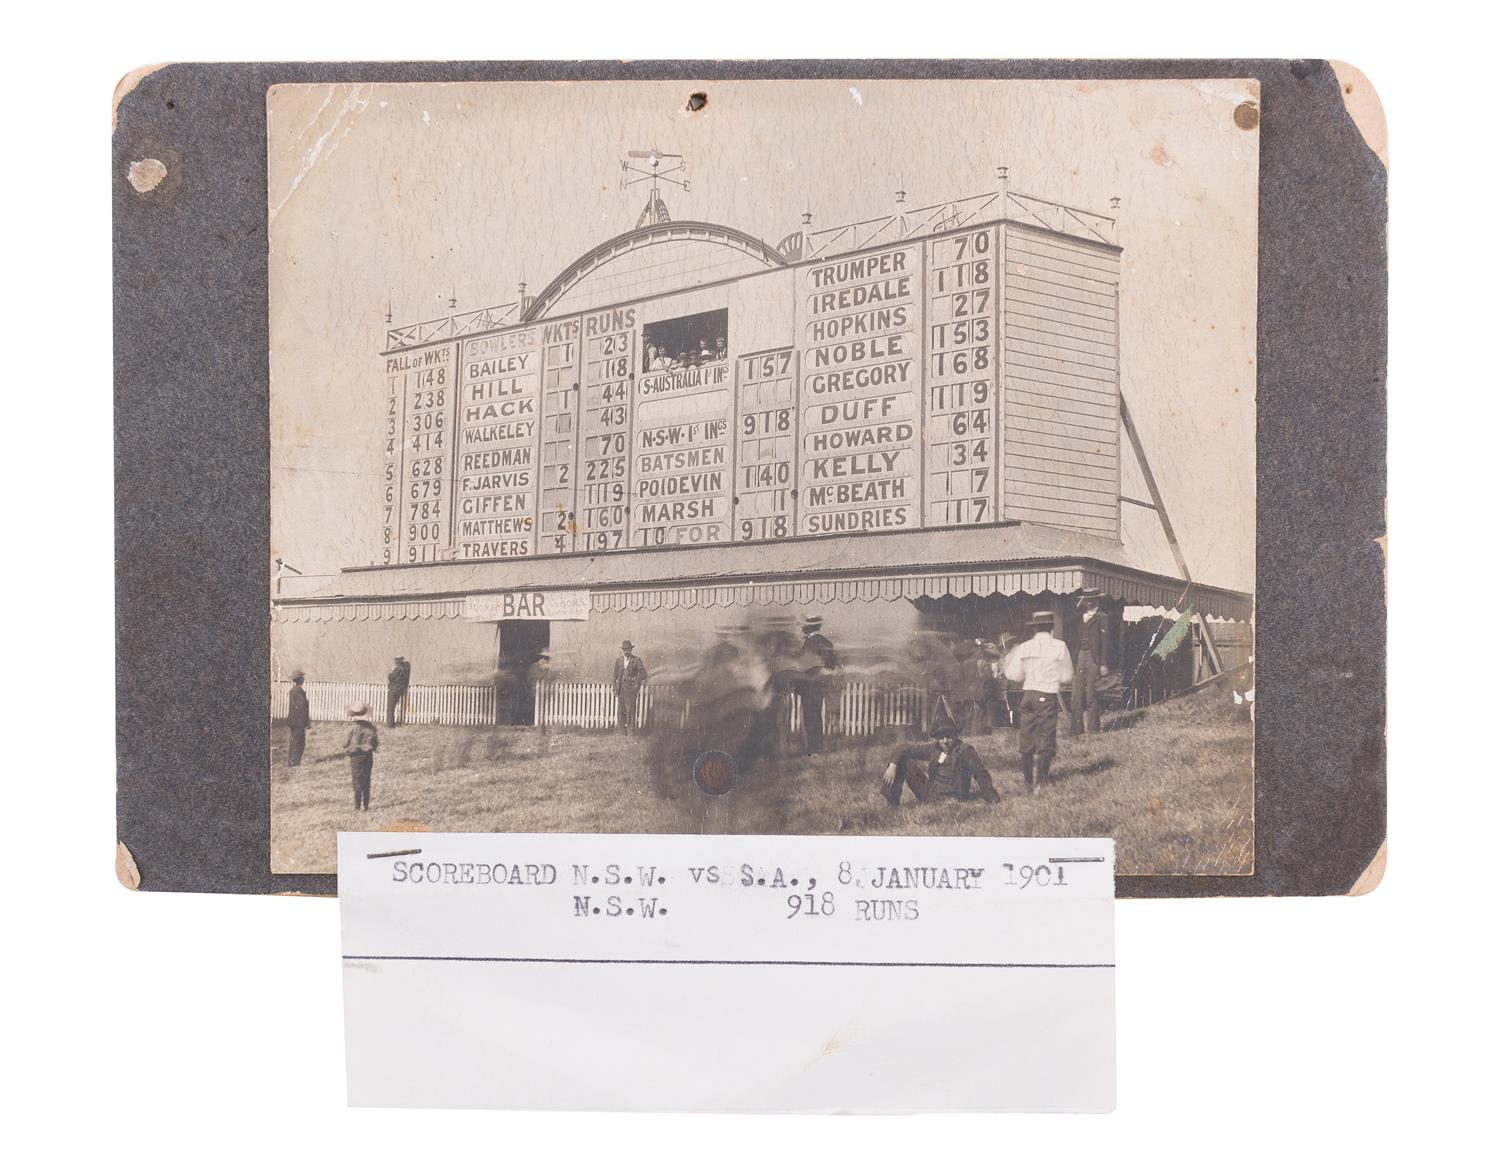 W S
N E
FALL OF WKTS
1 148
2 238
3 306
4 414
5 628
6 679
7 784
8 900
9 911
BOWLERS WKTS RUNS
BAILEY 1 23
HILL 18
HACK 1 44
WALKELEY 43
REEDMAN 70
F.JARVIS 2 225
GIFFEN 119
MATTHEWS 2 160
TRAVERS 4 197
S-AUSTRALIA 1st INGS 157
N·S·W·1st INGS 918
BATSMEN
POIDEVIN 140
MARSH 1
10 FOR 918
TRUMPER 70
IREDALE 118
HOPKINS 27
NOBLE 153
GREGORY 168
DUFF 119
HOWARD 64
KELLY 34
McBEATH 7
SUNDRIES 17
BAR
SCOREBOARD N.S.W. vs S.A., 8 JANUARY 1901
N.S.W. 918 RUNS